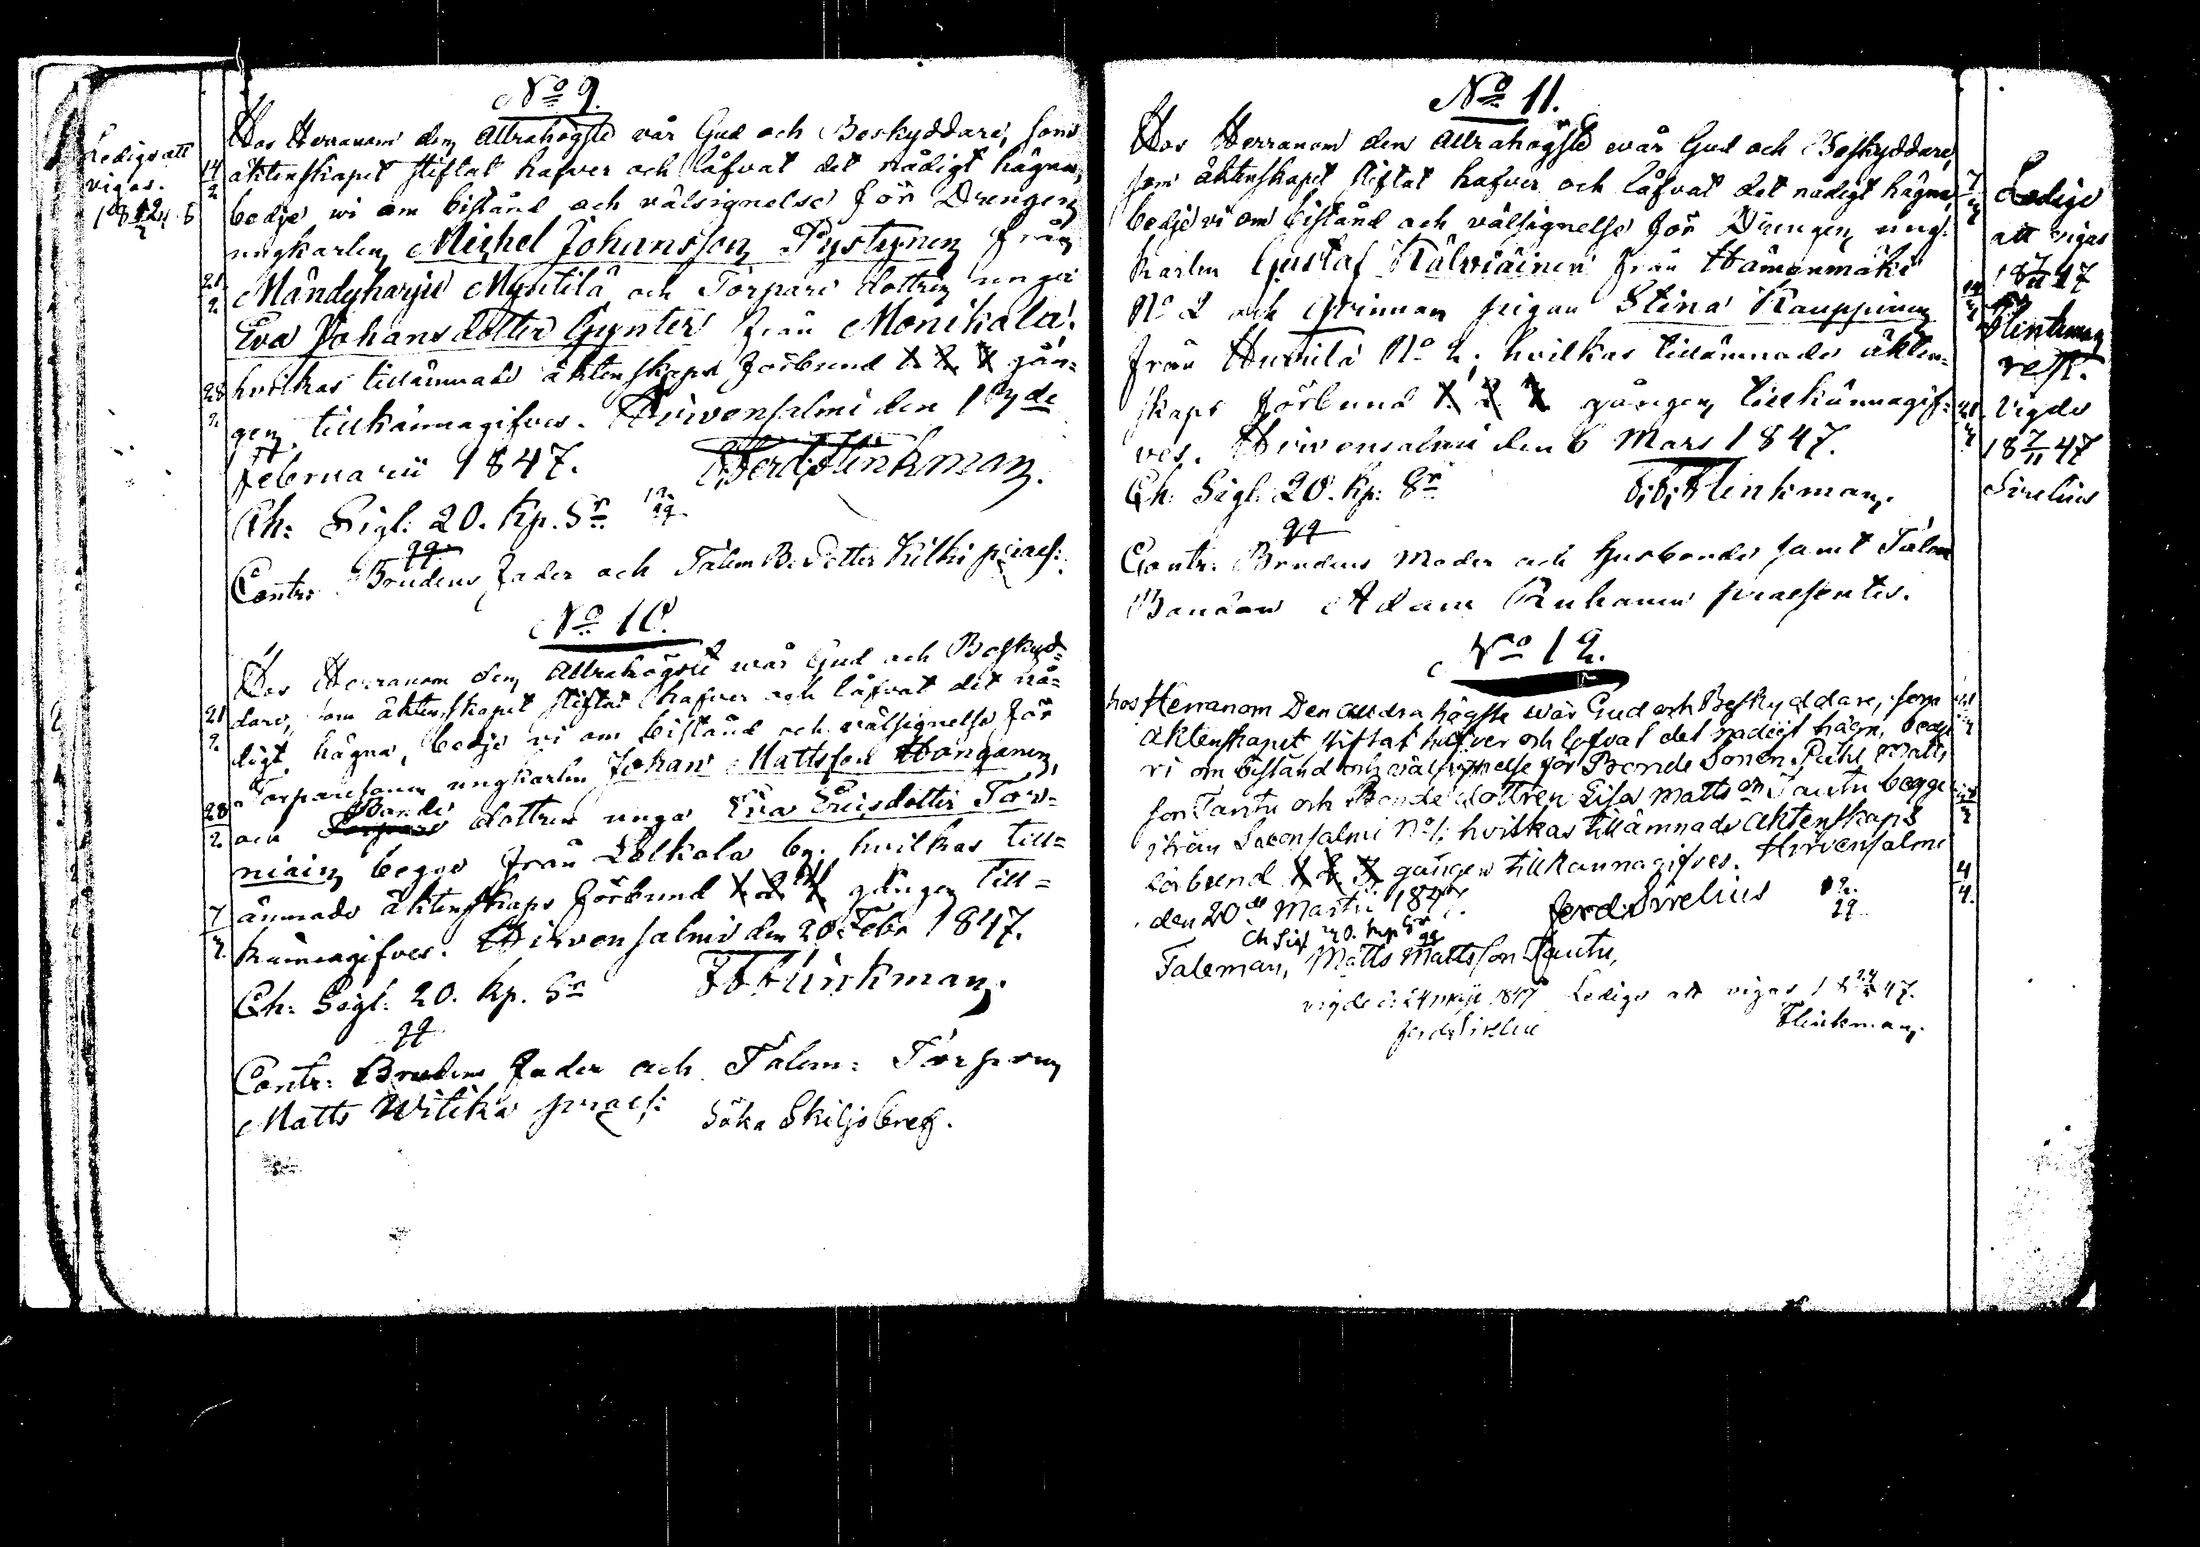 No 9.
Ledige att
vigas.
Hos Herranom den Allrahögste vår Gud och Beskyddare, som
14/2 äktenskapet stiftat hafver och låfvat det nådigt hägna,
bedje vi om bistånd och välsignelse för Drengen
ungkarlen Michel Johansson Pystynen från
21/2 Mändyharju Myntilä och Torpare dottren unga
Eva Johansdotter Gynter från Monikala.
28/2 hvilkas tillämnade äktenskaps förbund 1. 2. 3 gån-
gen tillkännagifves. Hirvensalmi den 13de
Februarii 1847. Ferd Flinkman.
Ch: Sigl: 20. Kp. Sr
Contr: Brudens fader och Talem B. Petter Kilki præs:
No 10.
Hos Herranom den Allrahögste vår Gud och Beskyd-
21/2 dare, som äktenskapet stiftat hafver och låfvat det nå-
digt hägna, bedje vi om bistånd och välsignelse för
Torparesonen ungkarlen Johan Mattsson Honganen,
28/2 och Torpare Bonde dottren unga Eva Ericsdotter Tor-
niain begge från Lelkola by. hvilkas till-
7/3 ämnade äktenskaps förbund 1. 2. 3 gången till-
kännagifves. Hirvensalmi den 20 Febr 1847.
Ch: Sigl: 20. Kp. Sr Flinkman.
Contr: Brudens fader och Talem: Torparen
Matts Witika præs: Söka Skiljobref.
No 11.
Hos Herranom den Allrahögste vår Gud och Beskyddare,
som äktenskapet stiftat hafver och låfvat det nådigt hägna, 7/3
bedje vi om bistånd och välsignelse för Drengen ung-
karlen Gustaf Kälviäinen från Hämenmäki
No 2 och qvinnan pigan Stina Kauppinen 14/3
från Huttila No 2; hvilkas tillämnade äkten-
skaps förbund 1. 2. 3 gången tillkännagif- 21/3
ves. Hirvensalmi den 6 Mars 1847.
Ch: Sigl: 20. Kp: Sr Flinkman.
Contr: Brudens Moder och Husbonde samt Talem
Bonden Adam Ruhanen præsentes.
Ledige
att vigas
18 7/11 47
Flinkman
resp.
Vigde
18 7/11 47
Sirelius
No 12.
hos Herranom Den alldra högste wår Gud och Beskyddare, som 21/3
äktenskapet stiftat hafver och lofvat det nådigt hägn, bedje
vi om bistånd och välsignelse för Bonde Sonen Pehr Matts
son Tantu och Bonde dottren Lisa Mattsdr Tautu begge 28/3
från Savonsalmi No 1; hvilkas tillämnade äktenskaps
förbund 1. 2. 3. gången tillkännagifves. Hirvensalmi 4/4
den 20de Martii 1847. Ferd. Sirelius
Ch Sigl 20. kop Sr
Taleman, Matts Mattsson Tautu,
vigde d: 24 maji 1847 Ledige att vigas 18 24/5 47.
Ferd Sirelius Flinkman.